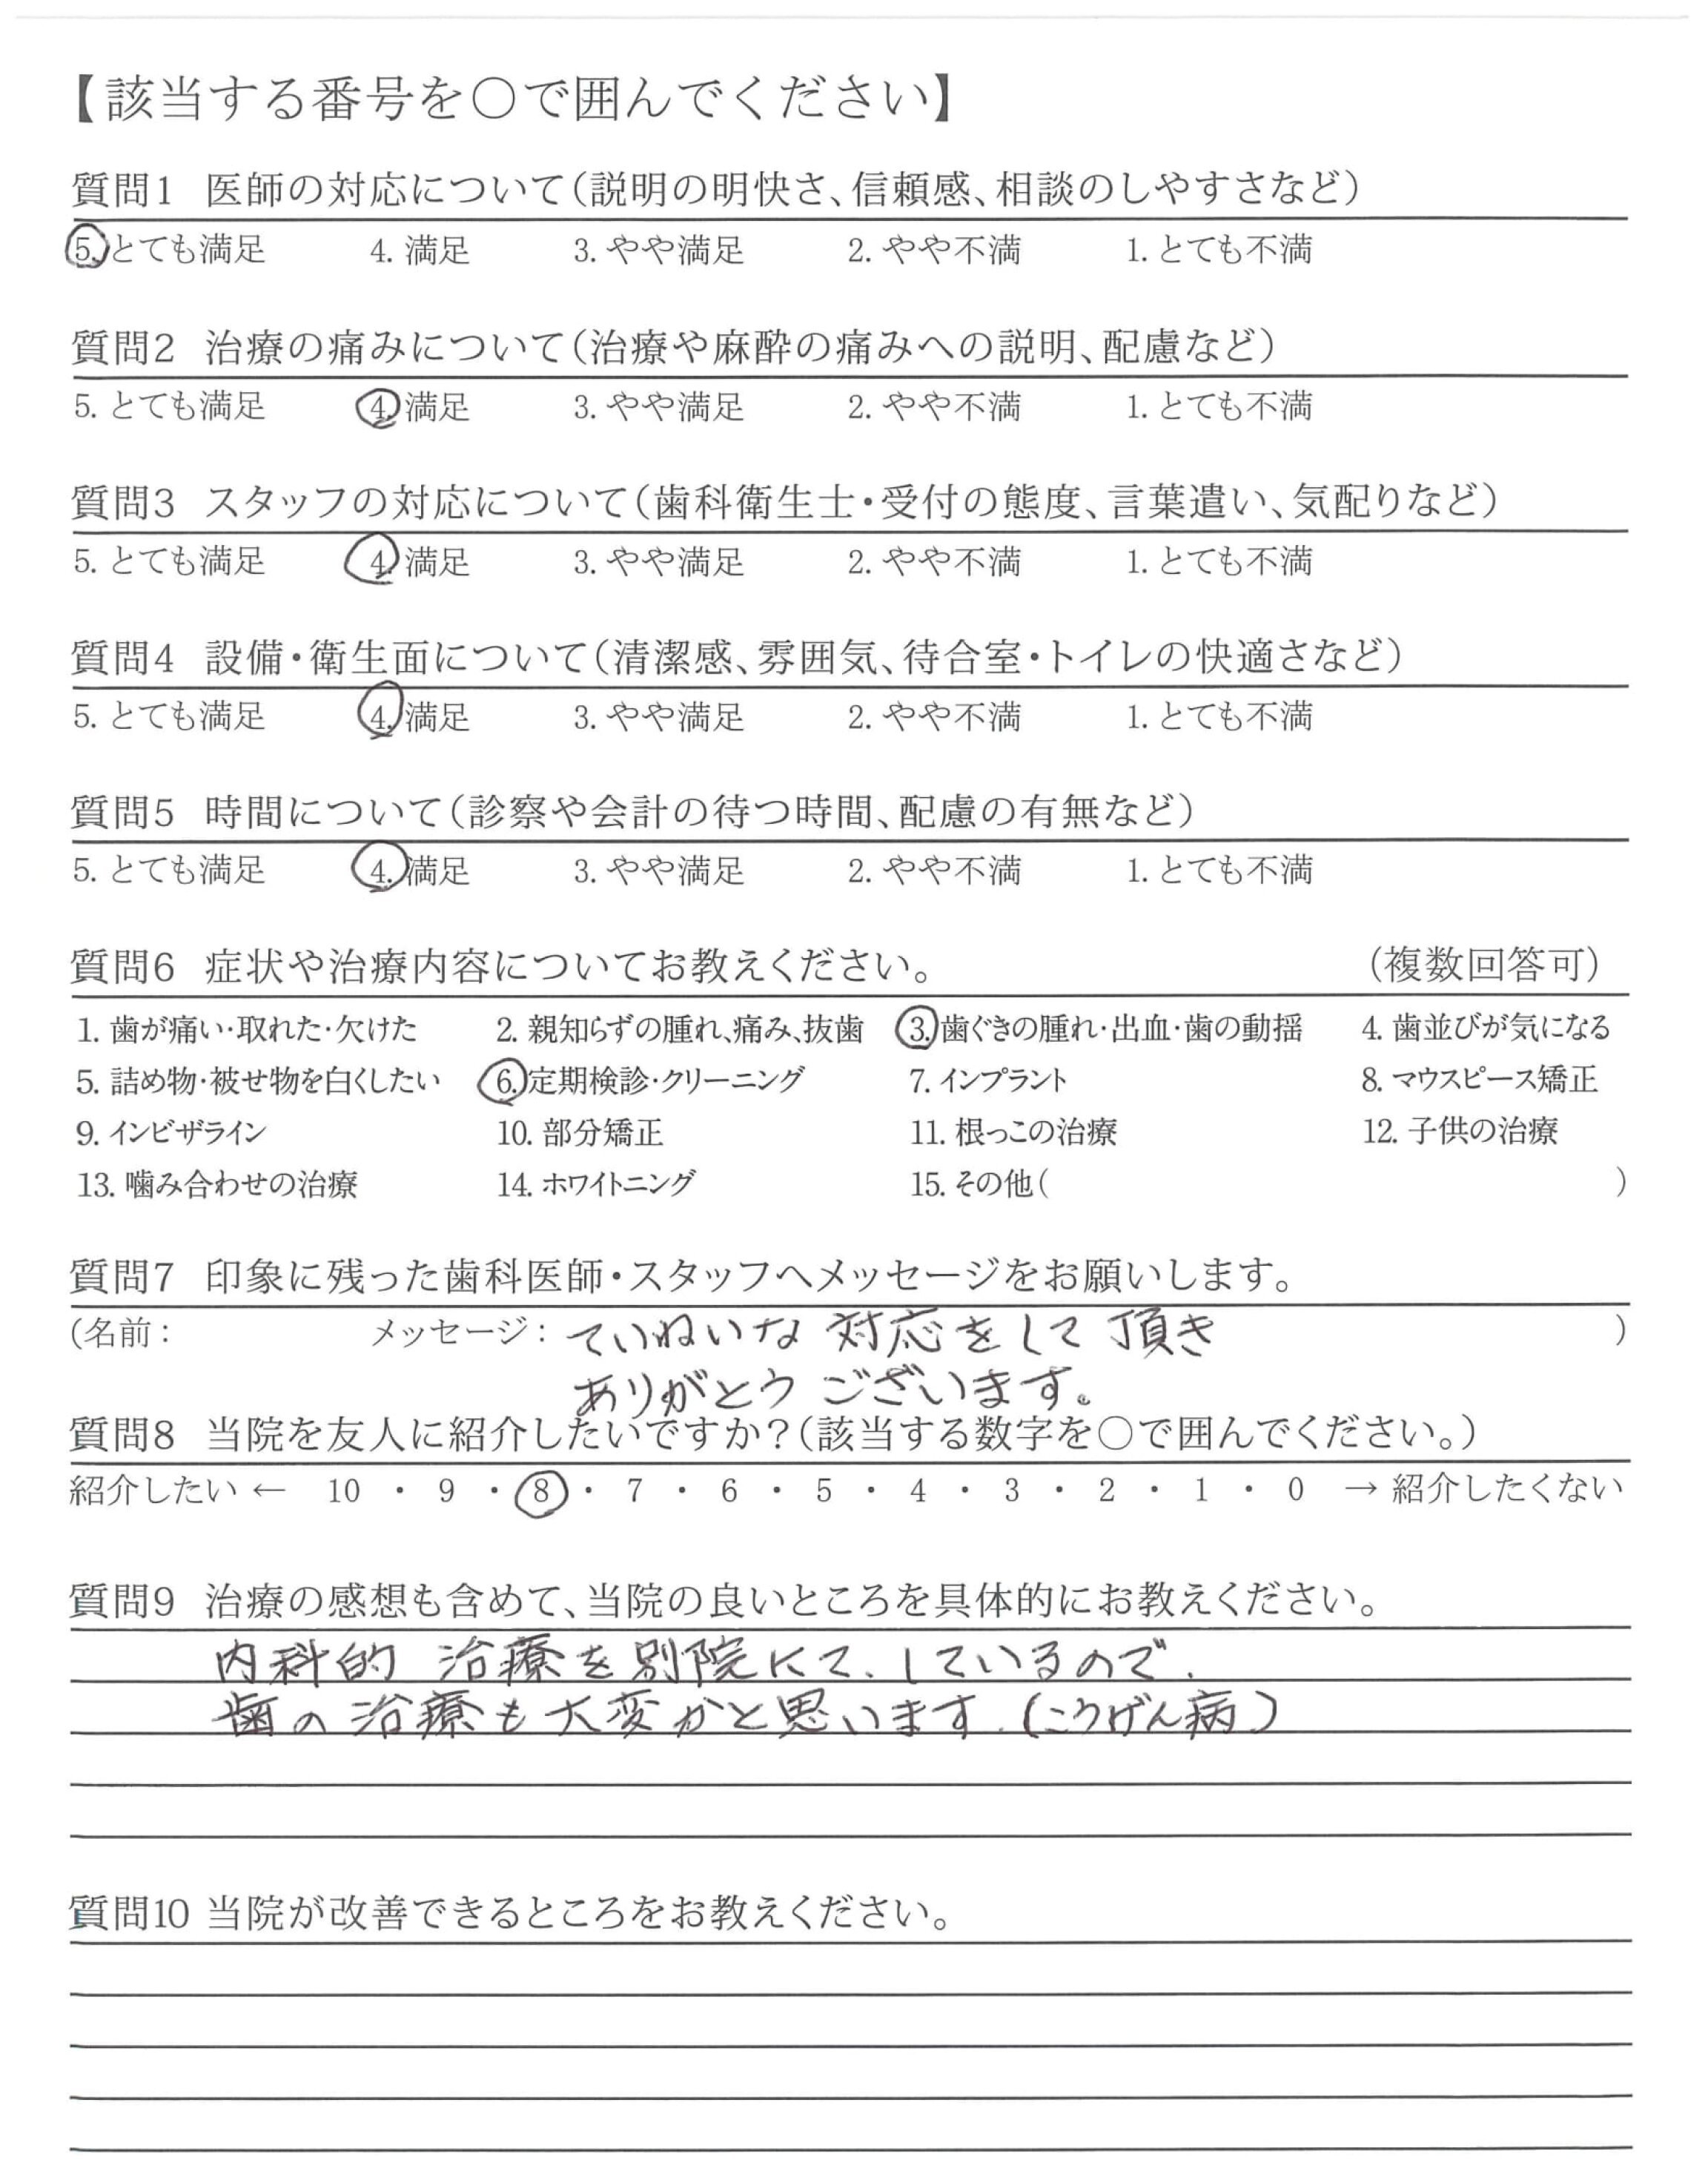 【該当する番号を○で囲んでください】
質問1 医師の対応について（説明の明快さ、信頼感、相談のしやすさなど）
5. とても満足 4. 満足 3. やや満足 2. やや不満 1. とても不満
質問2 治療の痛みについて（治療や麻酔の痛みへの説明、配慮など）
5. とても満足 4. 満足 3. やや満足 2. やや不満 1. とても不満
質問3 スタッフの対応について（歯科衛生士・受付の態度、言葉遣い、気配りなど）
5. とても満足 4. 満足 3. やや満足 2. やや不満 1. とても不満
質問4 設備・衛生面について（清潔感、雰囲気、待合室・トイレの快適さなど）
5. とても満足 4. 満足 3. やや満足 2. やや不満 1. とても不満
質問5 時間について（診察や会計の待つ時間、配慮の有無など）
5. とても満足 4. 満足 3. やや満足 2. やや不満 1. とても不満
質問6 症状や治療内容についてお教えください。 （複数回答可）
1. 歯が痛い・取れた・欠けた 2. 親知らずの腫れ、痛み、抜歯 3. 歯ぐきの腫れ・出血・歯の動揺 4. 歯並びが気になる
5. 詰め物・被せ物を白くしたい 6. 定期検診・クリーニング 7. インプラント 8. マウスピース矯正
9. インビザライン 10. 部分矯正 11. 根っこの治療 12. 子供の治療
13. 噛み合わせの治療 14. ホワイトニング 15. その他（ ）
質問7 印象に残った歯科医師・スタッフへメッセージをお願いします。
（名前： メッセージ：ていねいな 対応をして 頂き ）
ありがとう ございます。
質問8 当院を友人に紹介したいですか？（該当する数字を○で囲んでください。）
紹介したい ← 10 ・ 9 ・ 8 ・ 7 ・ 6 ・ 5 ・ 4 ・ 3 ・ 2 ・ 1 ・ 0 → 紹介したくない
質問9 治療の感想も含めて、当院の良いところを具体的にお教えください。
内科的 治療を別院にて、しているので、
歯の治療も大変かと思います。（こうげん病）
質問10 当院が改善できるところをお教えください。